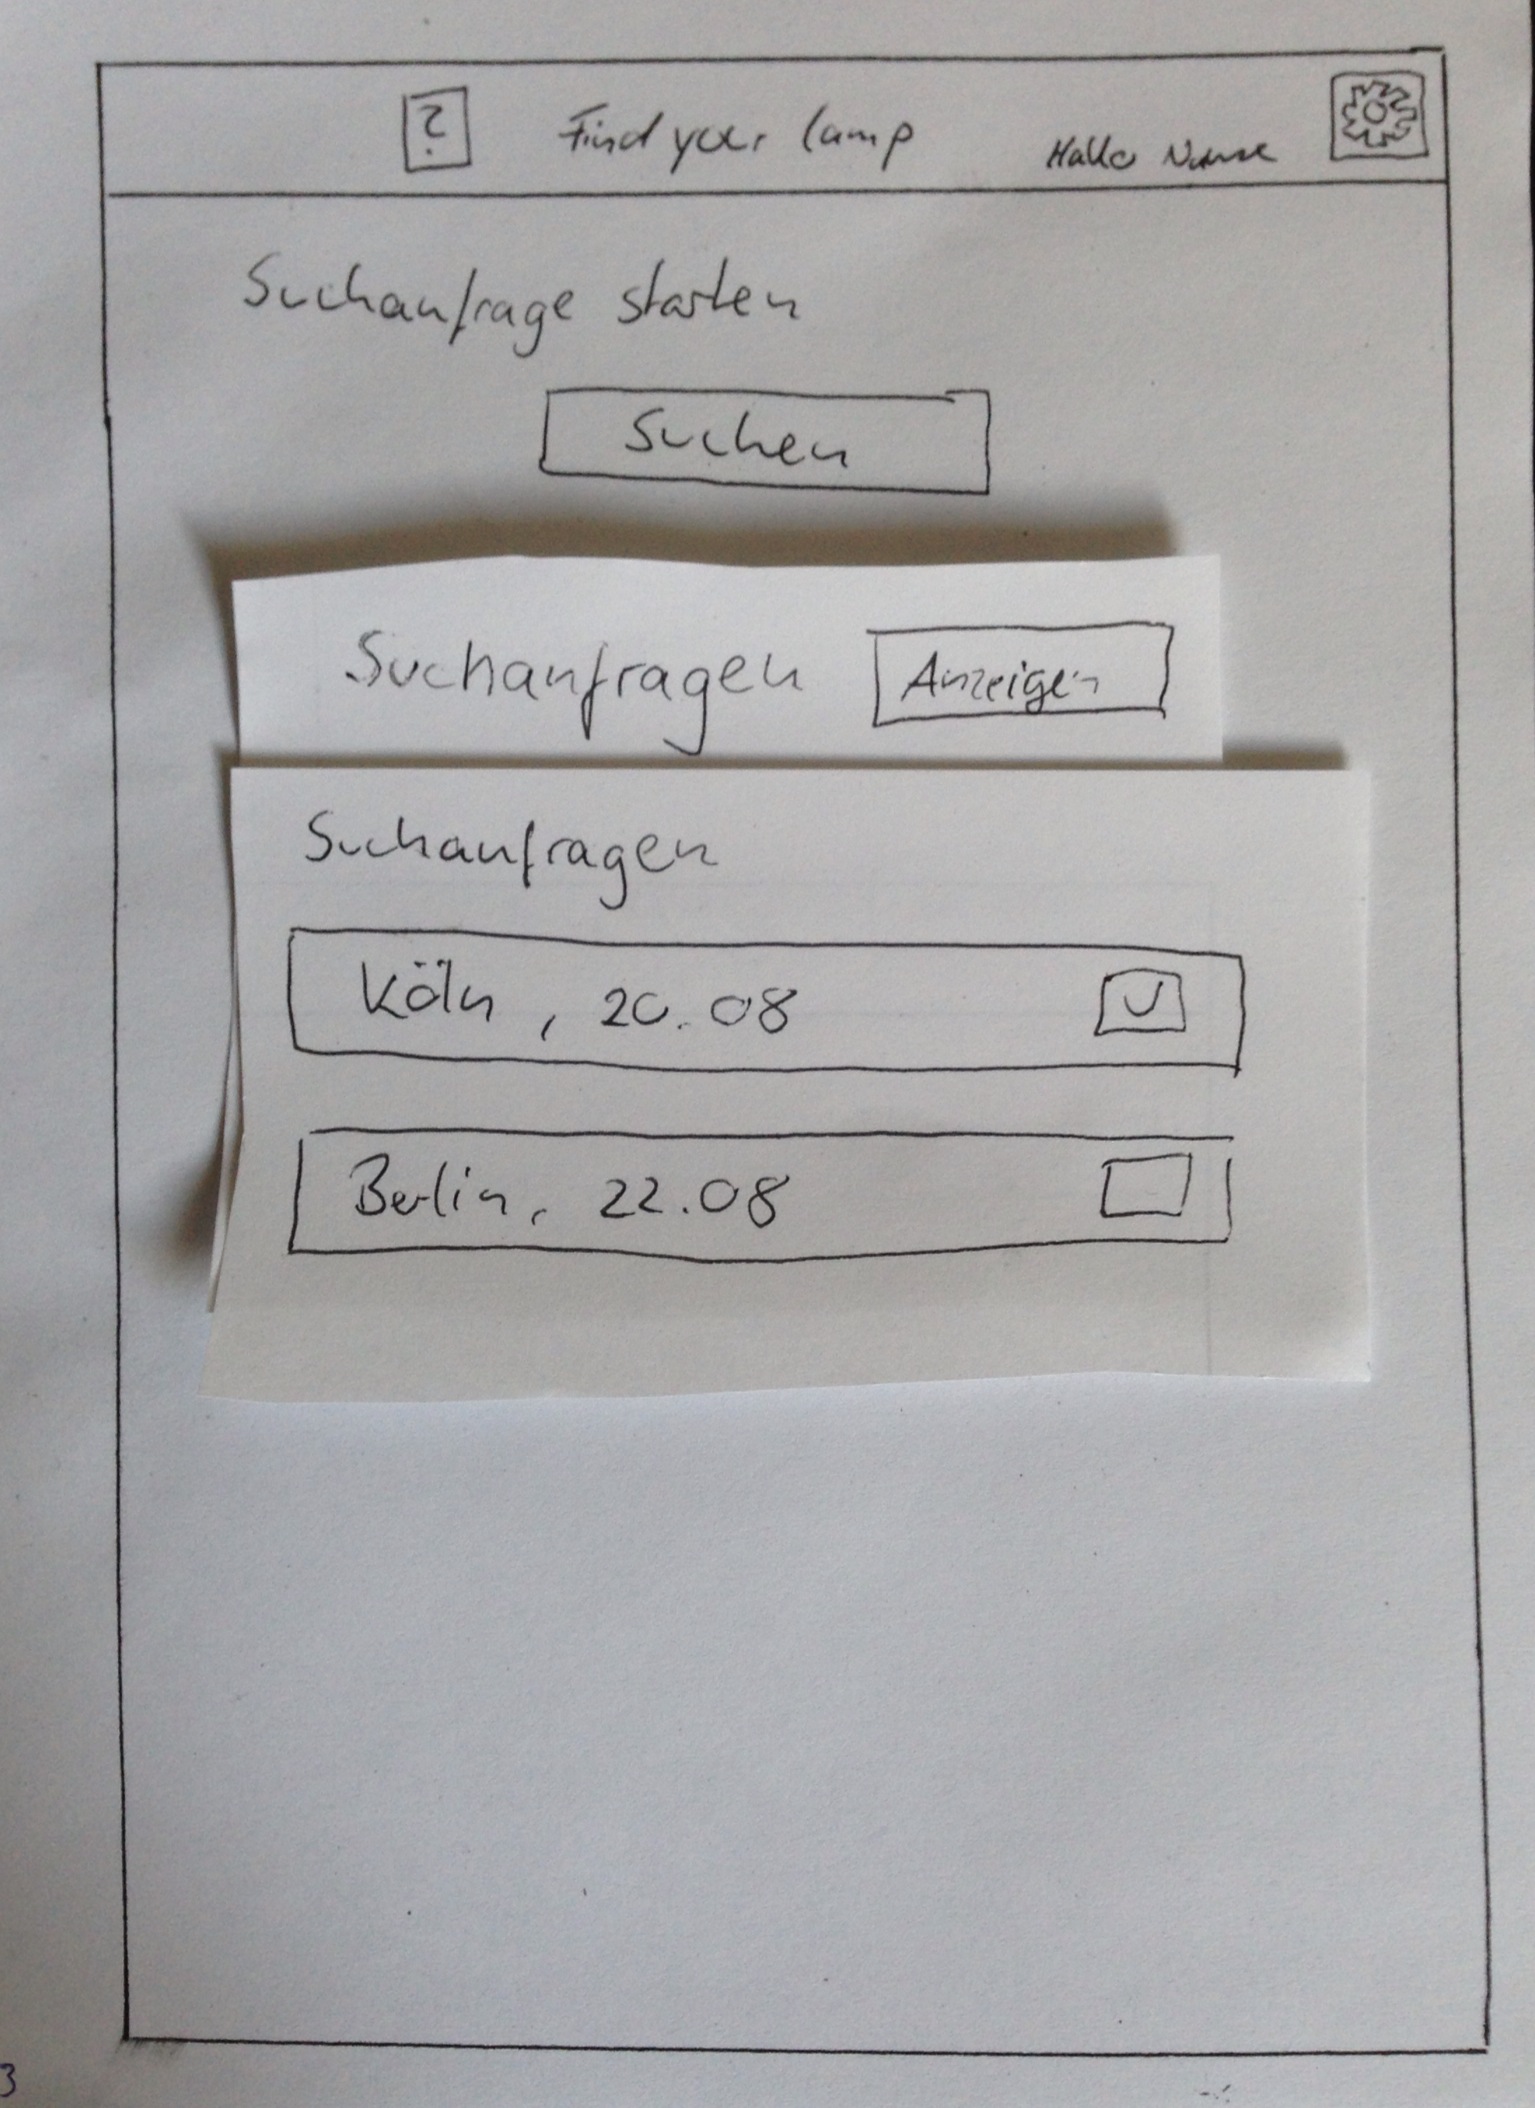 ? Find your lamp Hallo Name
Suchanfrage starten
Suchen
Suchanfragen Anzeigen
Suchanfragen
Köln, 20.08
Berlin, 22.08
3